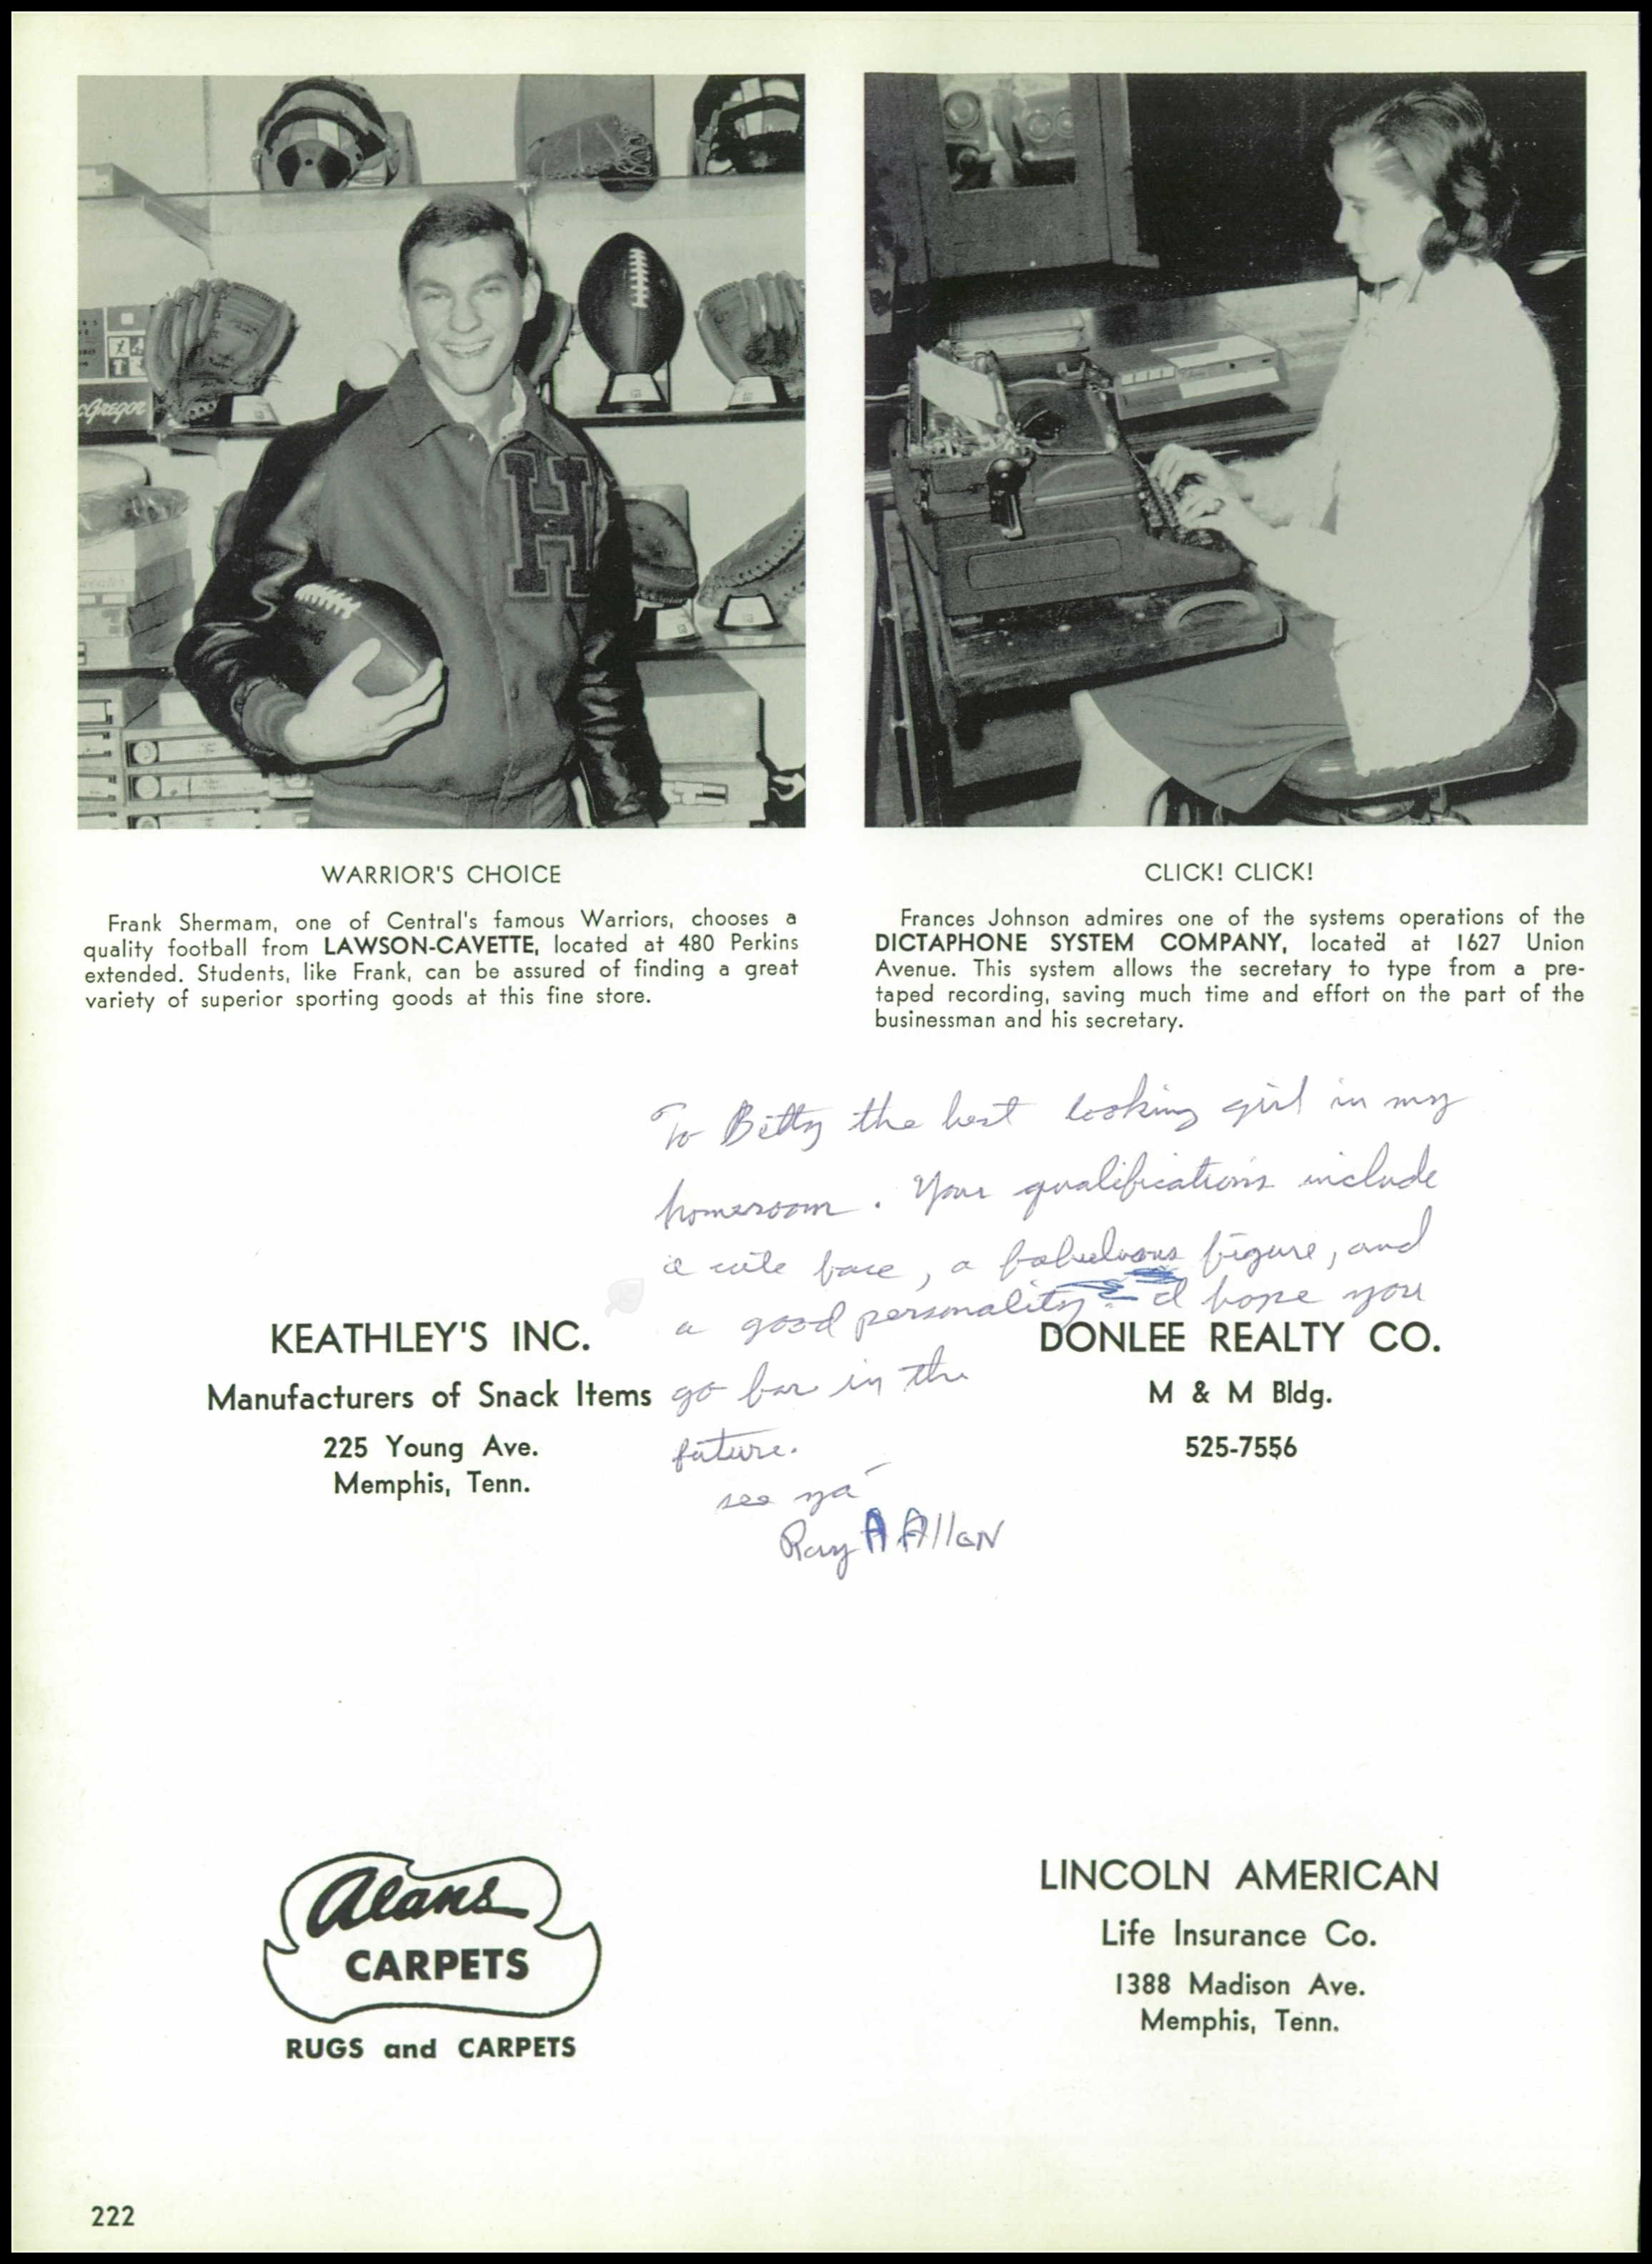 cGregor
H
WARRIOR'S CHOICE
Frank Shermam, one of Central's famous Warriors, chooses a
quality football from LAWSON-CAVETTE, located at 480 Perkins
extended. Students, like Frank, can be assured of finding a great
variety of superior sporting goods at this fine store.
CLICK! CLICK!
Frances Johnson admires one of the systems operations of the
DICTAPHONE SYSTEM COMPANY, located at 1627 Union
Avenue. This system allows the secretary to type from a pre-
taped recording, saving much time and effort on the part of the
businessman and his secretary.
To Betty the best looking girl in my
homeroom. Your qualifications include
a cute face, a fabulous figure, and
a good personality. I hope you
go far in the
future.
see ya
Ray A Allen
KEATHLEY'S INC.
Manufacturers of Snack Items
225 Young Ave.
Memphis, Tenn.
DONLEE REALTY CO.
M & M Bldg.
525-7556
Alans
CARPETS
RUGS and CARPETS
LINCOLN AMERICAN
Life Insurance Co.
1388 Madison Ave.
Memphis, Tenn.
222